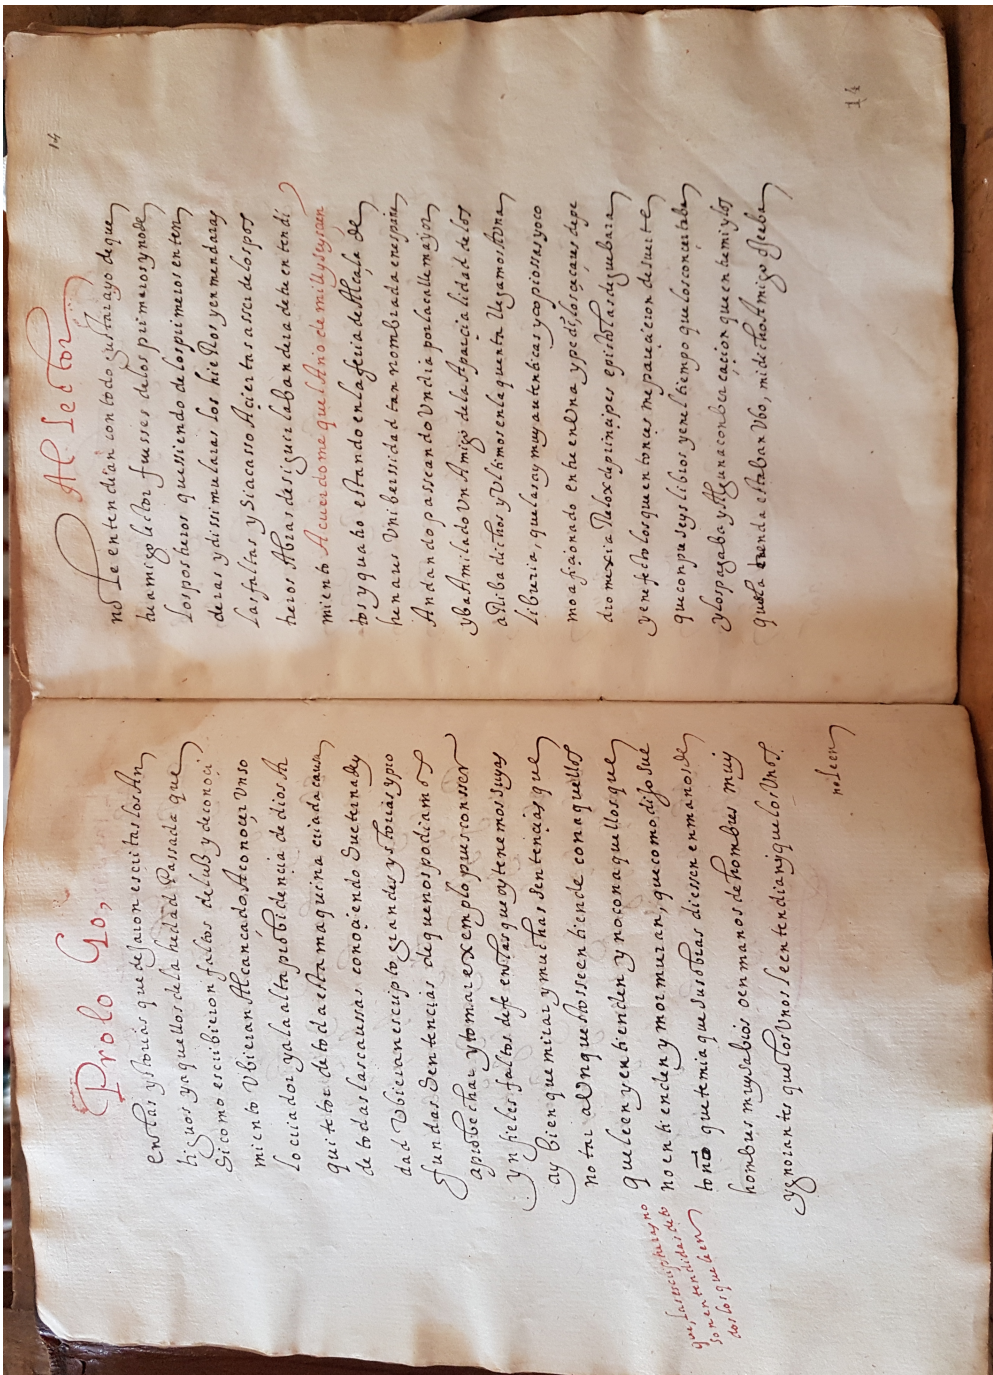 Prolo Go,
en las ystorias que dejaron escritas los An
tiguos y aquellos de la hedad Passada que
Si como escribieron faltos de luz y de conoci
miento Vbieran Alcancado, A conocer Vn so
lo criador y a la alta probidencia de dios Ar
quitetor de toda esta maquina criada causa
de todas las caussas conociendo Su eternidad
dad Vbieran escripto grandes ystorias y pro
fundas Sentencias de que nos podiamos
aprobechar y tomar exemplo pues con sser
ynfieles faltos de fe en las que oy tenemos suyas
ay bien que mirar y muchas sentencias que
notar aVnque no sse entiende con aquellos
que leen y entienden y no con aquellos que
no entienden y mormuran, que como dijo Sue
tonio que temia que sus obras diessen en manos de
hombres muy sabios o en manos de hombres muy
ygnorantes que los Vnos le entendian y que los Vnos
no le en
que, las escripturas no
son entendidas de to
dos los que leen
Al Lector
14
no le entendian con todo gustara yo de que
tu amigo lector fuesses de los primeros y no de
los postreros que ssiendo de los primeros enten
deras y dissimularas los hierros y enmendaras
las faltas y Si acasso Aciertas a sser de los pos
treros Abras de siguir la bandera de tu entendi
miento Acuerdome que el Año de mill y seyscien
tos y quatro estando en la feria de Alcala de
henares Vnibersidad tan nombrada en españa
Andando passeando Vn dia por la calle mayor
yba A mi lado Vn Amigo de la Aparcialidad de los
arriba dichos y Vltimos en la quenta llegamos A Vna
libreria, que las ay muy autenticas y copiossas y yo co
mo aficionado entre en Vna y pedi, los cesares de pe
dro mexia Relox de principes epistolas de guebara
y en efeto los que entonces me parecieron de suerte
que conpre seys libros y en el tiempo que los concertaba
y los pagaba y Alguna conbercacion que entre mi y los
que en la tienda estaban Vbo, mi dicho Amigo oSeaba
14